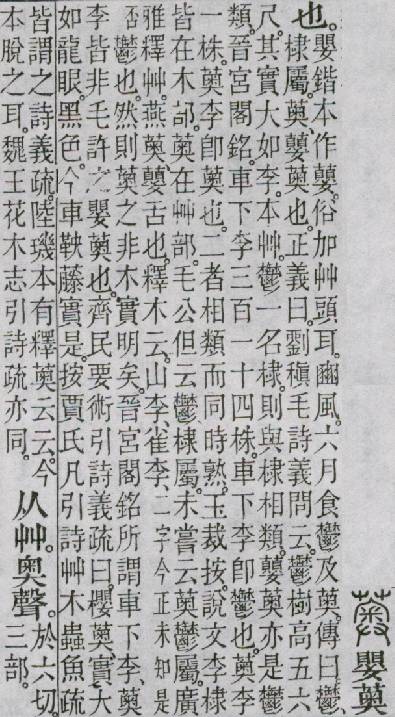 薁 嬰薁
也。嬰鍇本作蘡。俗加艸頭耳。豳風。六月食鬱及薁。傳曰。鬱、
棣屬。薁、蘡薁也。正義曰。劉稹毛詩義問云。鬱樹高五六
尺。其實大如李。本艸。鬱一名棣。則與棣相類。蘡薁亦是鬱
類。晉宮閣銘。車下李三百一十四株。車下李卽鬱也。薁李
一株。薁李卽薁也。二者相類而同時熟。玉裁按。說文李棣
皆在木部。薁在艸部。毛公但云鬱、棣屬。未嘗云薁鬱屬。廣
雅釋艸。燕薁、蘡舌也。釋木云。山李、雀李、二字今正未知是
否鬱也。然則薁之非木實明矣。晉宮閣銘所謂車下李、薁
李皆非毛許之嬰薁也。齊民要術引詩義疏曰。櫻薁、實大
如龍眼。黑色。今車鞅藤實是。按賈氏凡引詩艸木蟲魚疏
皆謂之詩義疏。陸璣本有釋薁云云。今
本脫之耳。魏王花木志引詩疏亦同。
从艸。奧聲。
於六切。
三部。